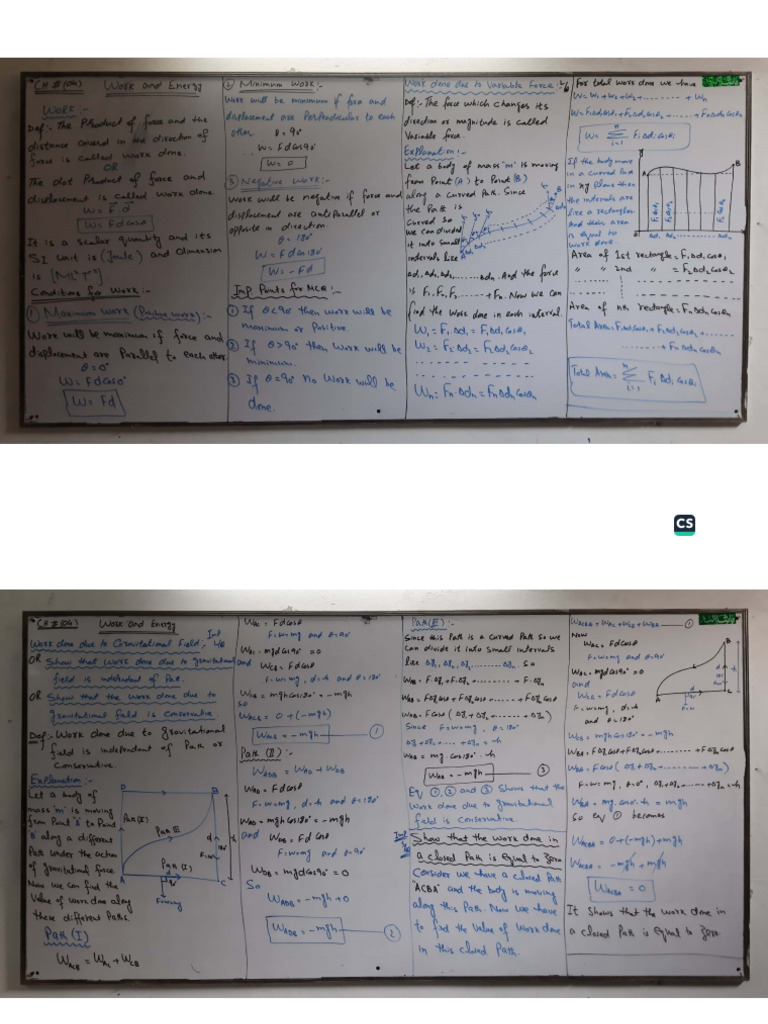 CH # (04) Work and Energy
Work:-
Def:- The Product of force and the
distance coverd in the direction of
force is called work done.
OR
The dot Product of force and
displacement is called work done.
W = F.d
W = Fd cosθ
It is a scalar quantity and its
SI unit is (Joule) and dimension
is [ML²T⁻²]
Conditions for Work:-
① Maximum Work (Positive work):-
Work will be maximum if force and
displacement are Parallel to each other.
θ = 0°
W = Fd cos0°
W = Fd
② Minimum Work:-
Work will be minimum if force and
displacement are Perpendicular to each
other θ = 90°
W = Fd cos90°
W = 0
③ Negative Work:-
Work will be negative if force and
displacement are antiparallel or
opposite in direction.
θ = 180°
W = Fd cos180°
W = -Fd
Imp Points for MCQ:-
① If θ<90° then work will be
maximum or Positive.
② If θ>90° then work will be
minimum.
③ If θ=90° no work will be
done.
Work done due to Variable Force:-
Def:- The force which changes its
direction or magnitude is called
Variable force.
Explanation:-
Let a body of mass 'm' is moving
from Point (A) to Point (B)
along a curved Path. Since
the Path is
curved so
we can divided
it into small
intervals like
Δd₁, Δd₂, ........ Δdn. And the force
is F₁, F₂, F₃ ........ Fn. Now we can
find the work done in each interval.
W₁ = F₁.Δd₁ = F₁Δd₁cosθ₁
W₂ = F₂.Δd₂ = F₂Δd₂cosθ₂
Wn = Fn.Δdn = FnΔdn cosθn
For total work done we have
W = W₁+W₂+W₃+ ........ + Wn
W = F₁Δd₁cosθ₁+F₂Δd₂cosθ₂+ ..... +FnΔdn cosθn
W = Σ Fi Δdi cosθi
n
i=1
If the body move
in a curved Path
in xy Plane then
the intervals are
like a rectangles
and their area
is equal to
work done.
A
B
Area of 1st rectangle = F₁Δd₁cosθ₁
" " 2nd " = F₂Δd₂cosθ₂
Area of nth rectangle = FnΔdn cosθn
Total Area = F₁Δd₁cosθ₁+F₂Δd₂cosθ₂+ ........
+FnΔdn cosθn
Total Area = Σ Fi Δdi cosθi
n
i=1
CS
CH # (04) Work and Energy
Work done due to Gravitational Field:-
OR Show that work done due to gravitational
field is independent of Path.
OR Show that the work done due to
gravitational field is conservative.
Def:- Work done due to gravitational
field is independent of Path or
Conservative.
Explanation:-
Let a body of
mass 'm' is moving
from Point 'A' to Point
'B' along a different
Path under the action
of gravitational force.
Now we can find the
Value of work done along
these different Paths.
D
B
Path (II)
Path III
Path (I)
A
C
F=w=mg
Path (I)
WACB = WAC + WCB
WAC = Fd cosθ
F=w=mg and θ=90°
WAC = mgd cos90° = 0
and WCB = Fd cosθ
F=w=mg, d=h and θ=180°
WCB = mgh cos180° = -mgh
so
WACB = 0+(-mgh)
WACB = -mgh ①
Path (II):-
WADB = WAD + WDB
WAD = Fd cosθ
F=w=mg, d=h and θ=180°
WAD = mgh cos180° = -mgh
and WDB = Fd cosθ
F=w=mg and θ=90°
WDB = mgd cos90° = 0
So
WADB = -mgh+0
WADB = -mgh ②
Path (III):-
Since this Path is a curved Path so we
can divide it into small intervals
Since F=w=mg, θ=180°
WAB = mg cos180°.h
WAB = -mgh ③
Eq ①, ② and ③ Shows that the
work done due to gravitational
field is conservative.
Show that the work done in
a closed Path is equal to Zero
Consider we have a closed Path
'ACBA' and the body is moving
along this Path. Now we have
to find the value of work done
in this closed Path.
WACBA = WAC + WCB + WBA ①
Now
WAC = Fd cosθ
F=w=mg and θ=90°
WAC = mgd cos90° = 0
and
WCB = Fd cosθ
F=w=mg, d=h
and θ=180°
WCB = mgh cos180° = -mgh
WBA = mg cos0°.h = mgh
So eq ① becomes
WACBA = 0+(-mgh)+mgh
WACBA = -mgh+mgh
WACBA = 0
It Shows that the work done in
a closed Path is equal to Zero.